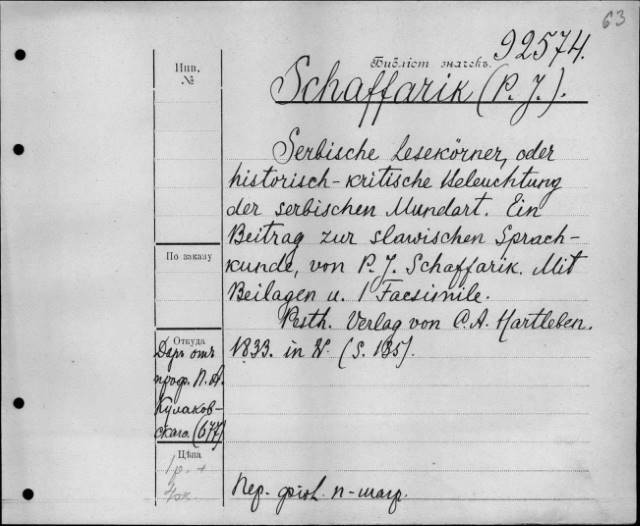 63
92574.
Инв.
№
Библіот значекъ.
Schaffarik (P. J.).
Serbische Lesekörner, oder
historisch-kritische Beleuchtung
der serbischen Mundart. Ein
Beitrag zur slawischen Sprach-
kunde, von P. J. Schaffarik. Mit
Beilagen u. 1 Facsimile.
Pesth. Verlag von C. A. Hartleben.
1833. in 8. (S. 135).
По заказу
Откуда
Даръ отъ
проф. П. А.
Кулаков-
скаго. (677)
Цѣна
1 р. +
Пер. фіол. п-шагр.